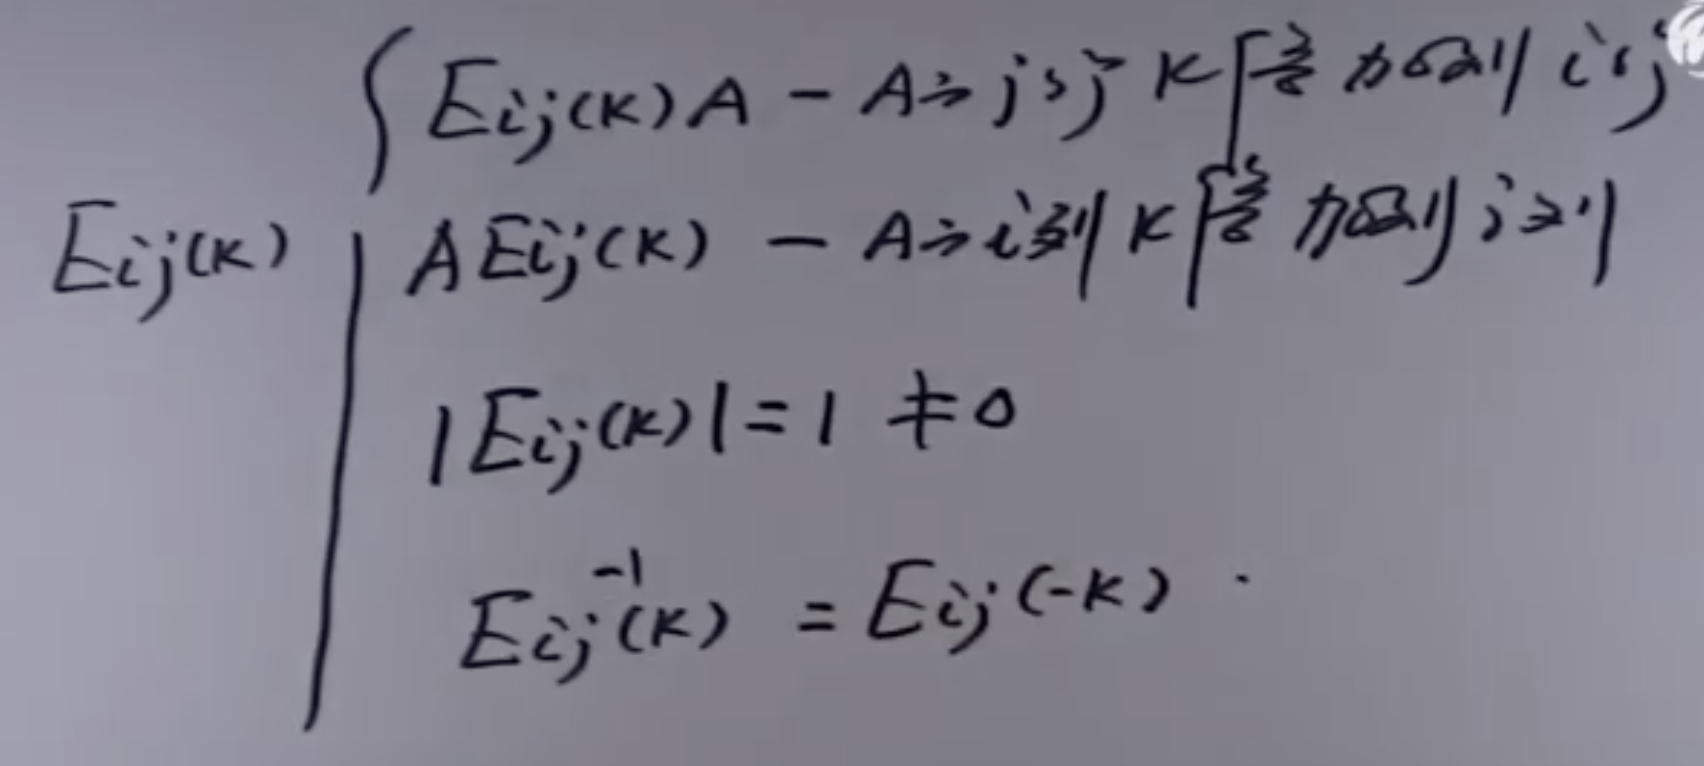 Eij(k)A - A之j行k倍加到i行
Eij(k)
AEij(k) - A之i列k倍加到j列
|Eij(k)| = 1 ≠ 0
Eij⁻¹(k) = Eij(-k).